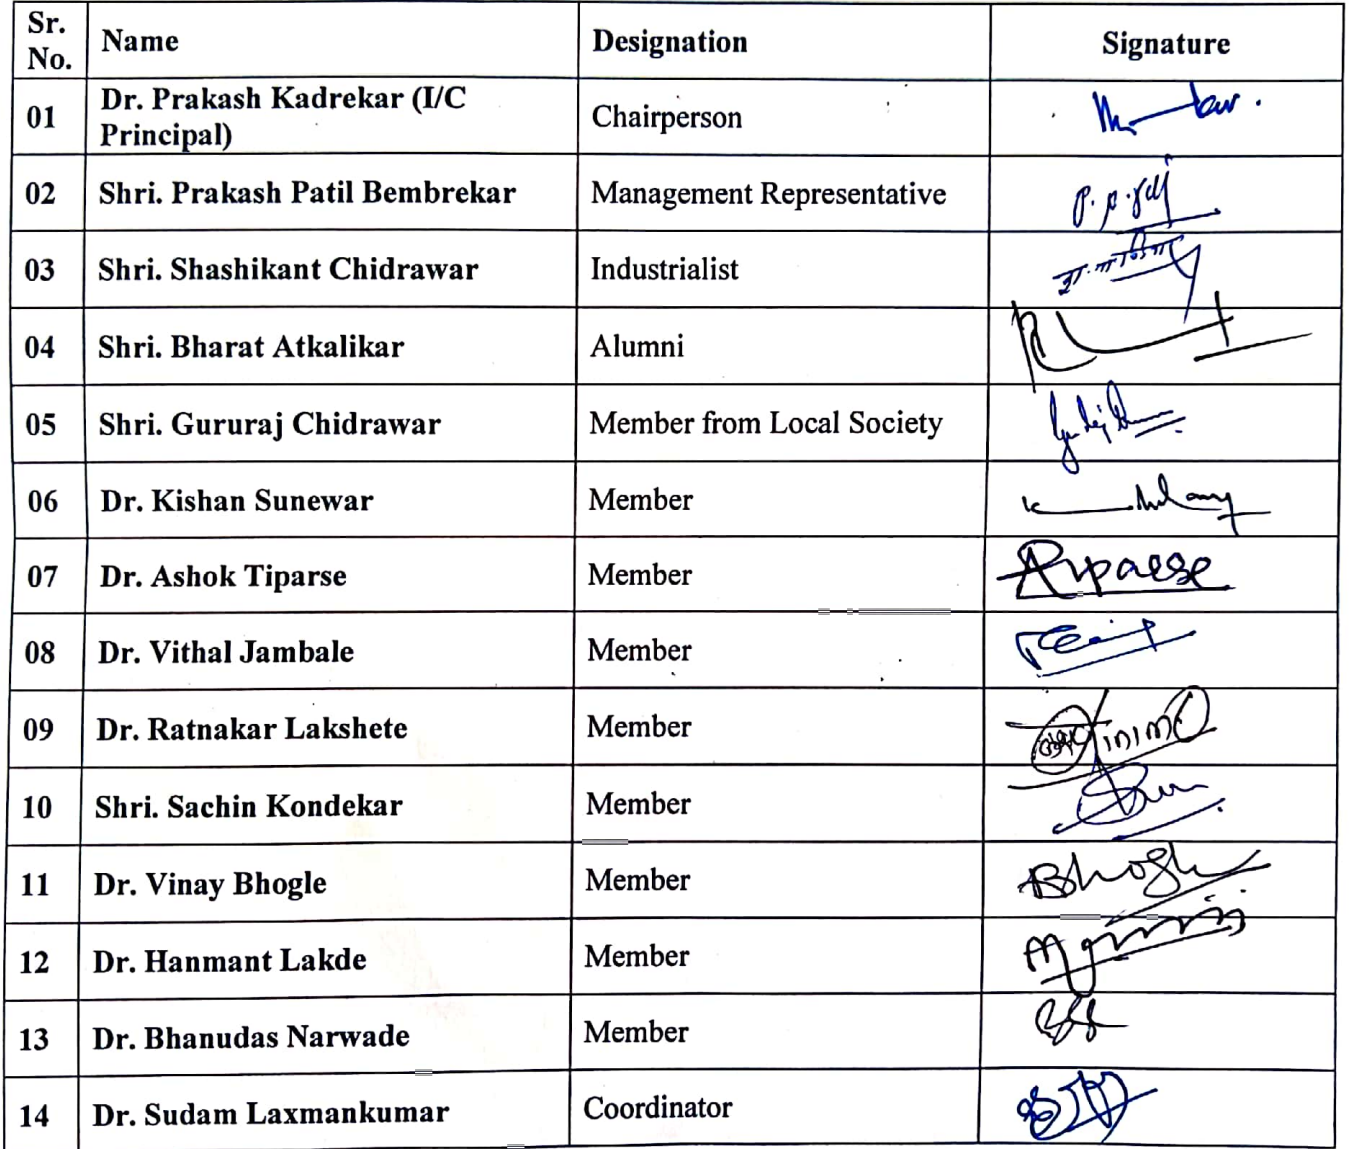 Sr. No. Name Designation Signature
01 Dr. Prakash Kadrekar (I/C Principal) Chairperson
02 Shri. Prakash Patil Bembrekar Management Representative
03 Shri. Shashikant Chidrawar Industrialist
04 Shri. Bharat Atkalikar Alumni
05 Shri. Gururaj Chidrawar Member from Local Society
06 Dr. Kishan Sunewar Member
07 Dr. Ashok Tiparse Member
08 Dr. Vithal Jambale Member
09 Dr. Ratnakar Lakshete Member
10 Shri. Sachin Kondekar Member
11 Dr. Vinay Bhogle Member
12 Dr. Hanmant Lakde Member
13 Dr. Bhanudas Narwade Member
14 Dr. Sudam Laxmankumar Coordinator